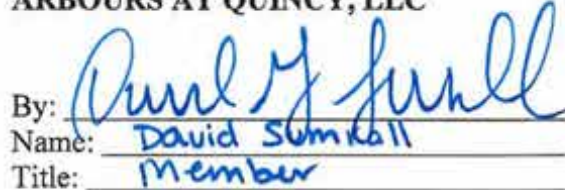 ARBOURS AT QUINCY, LLC
By:
Name: David Sumrall
Title: Member